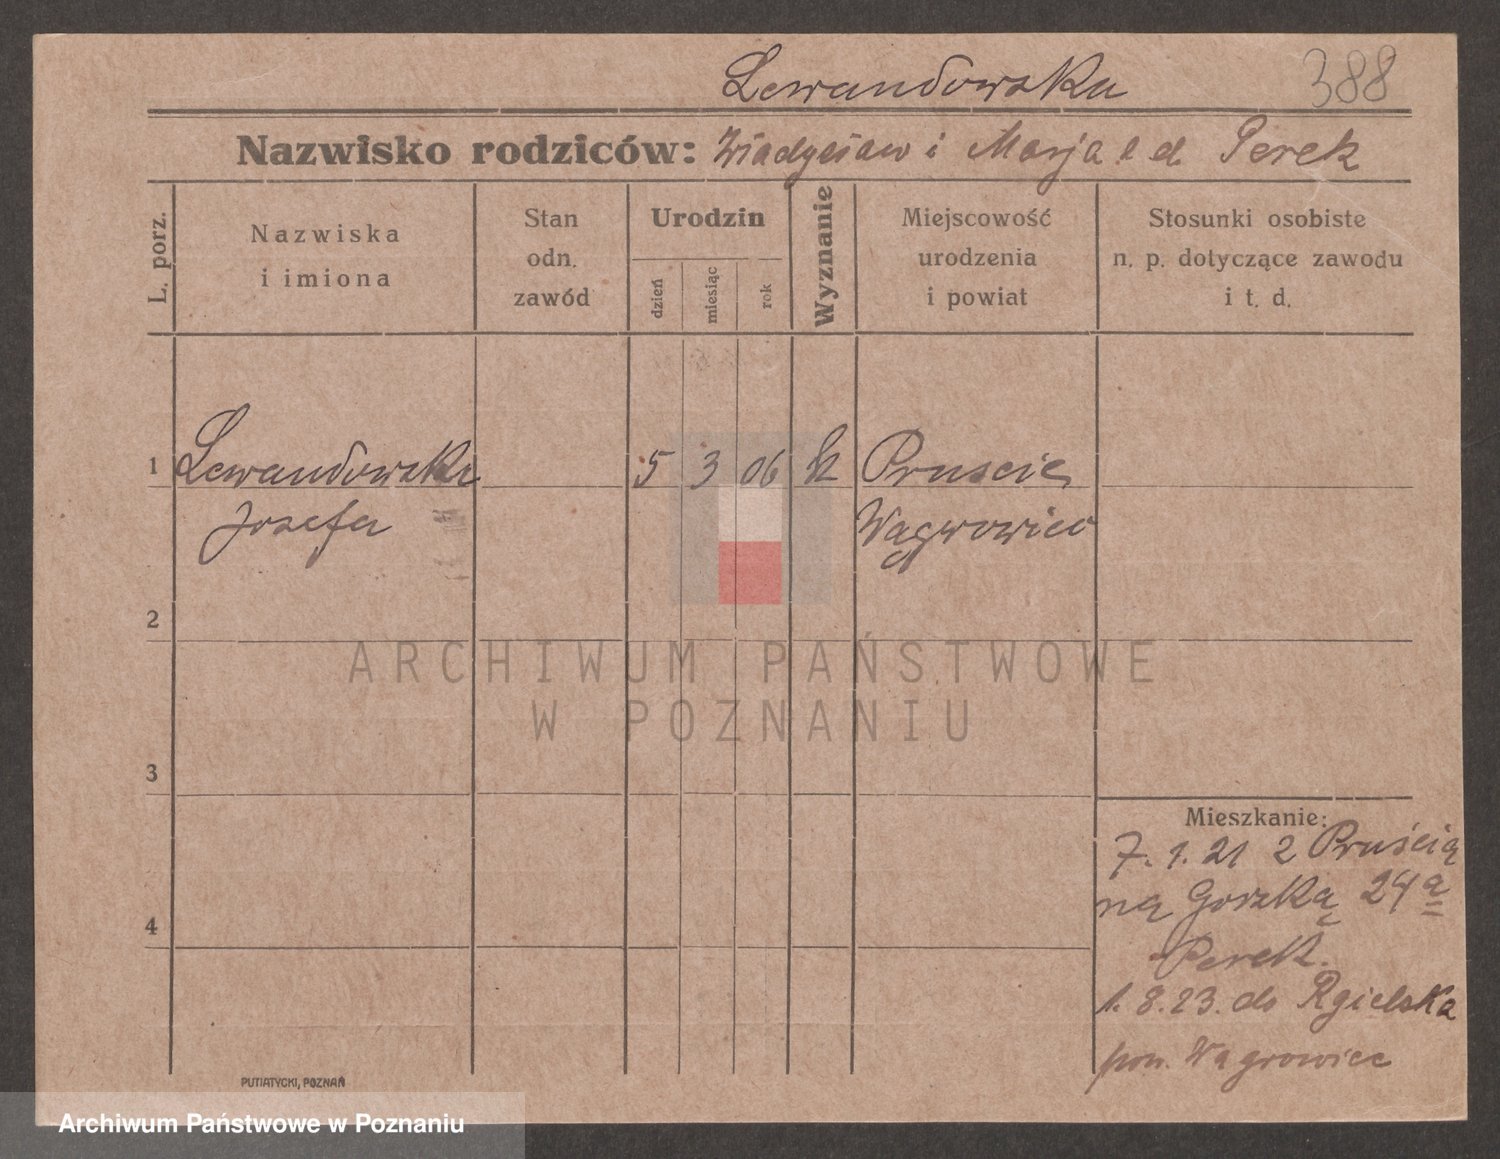 Lewandowska 388
Nazwisko rodziców: Władysław i Marja e d Perek
L. porz.
Nazwiska
i imiona
Stan
odn.
zawód
Urodzin
dzień
miesiąc
rok
Wyznanie
Miejscowość
urodzenia
i powiat
Stosunki osobiste
n. p. dotyczące zawodu
i t. d.
1 Lewandowska 5 3 06 k Pruscie
Josefa Wągrowiec
2
ARCHIWUM PAŃSTWOWE
W POZNANIU
3
Mieszkanie:
7. 1. 21 z Pruścią
na Gorzką 24a
4
Perek.
1. 8. 23. do Rgielska
pow. Wagrowiec
PUTIATYCKI, POZNAŃ
Archiwum Państwowe w Poznaniu